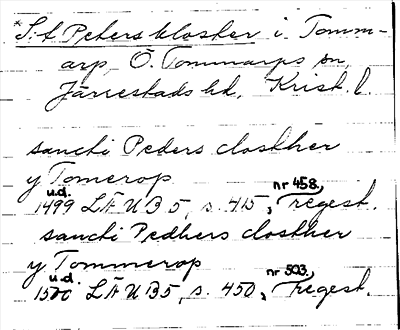 *S:t Peters kloster i Tomm-
arp, Ö. Tommarps sn,
Järrestads hd, Krist. l.
sancti Peders closther
y Tomerop
u.d. nr 458,
1499 LÄUB 5, s. 415, regest.
sancti Pedhers closther
y Tommerop
u.d. nr 503,
1500 LÄUB5, s. 450, regest.